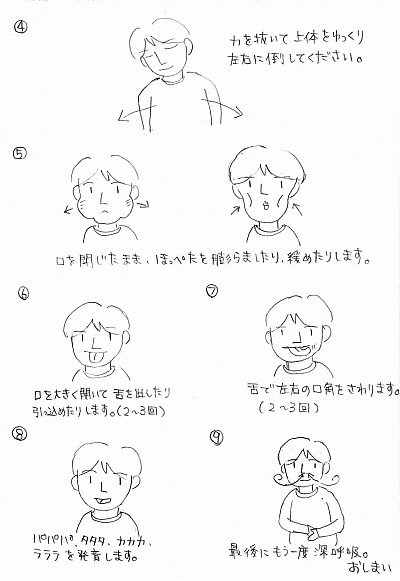 ④
力を抜いて上体をゆっくり
左右に倒してください。
⑤
口を閉じたまま、ほっぺたを膨らましたり、緩めたりします。
⑥
口を大きく開いて舌を出したり
引っ込めたりします。(2〜3回)
⑦
舌で左右の口角をさわります。
(2〜3回)
⑧
パパパ、タタタ、カカカ、
ラララを発音します。
⑨
最後にもう一度深呼吸。
おしまい